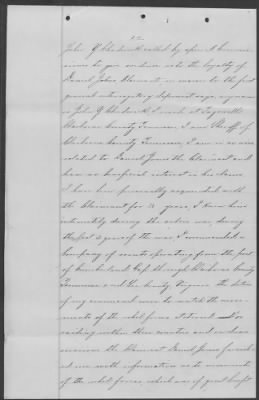 John G. called by special commis-
sioner to give evidence as to the loyalty of
Daniel Jones Claimant in answer to the first
general interrogatory deposeth & says, my name
is John G. I reside at Tazewell
Claiborne County Tennessee, I am Sheriff of
Claiborne County Tennessee, I am in no wise
related to Daniel Jones the Claimant and
have no beneficial interest in his Claim
I have been personally acquainted with
the Claimant for years, I knew him
intimately during the entire war, during
the last 2 years of the war, I commanded a
Company of scouts operating from the post
of Cumberland Gap through Claiborne County
Tennessee and Lee County, Virginia the duties
of my command were to watch the move-
ments of the rebel forces stationed or
raiding within these counties and on
occasions the Claimant Daniel Jones furnish-
ed me with information as to movements
of the rebel forces, which was of great benefit